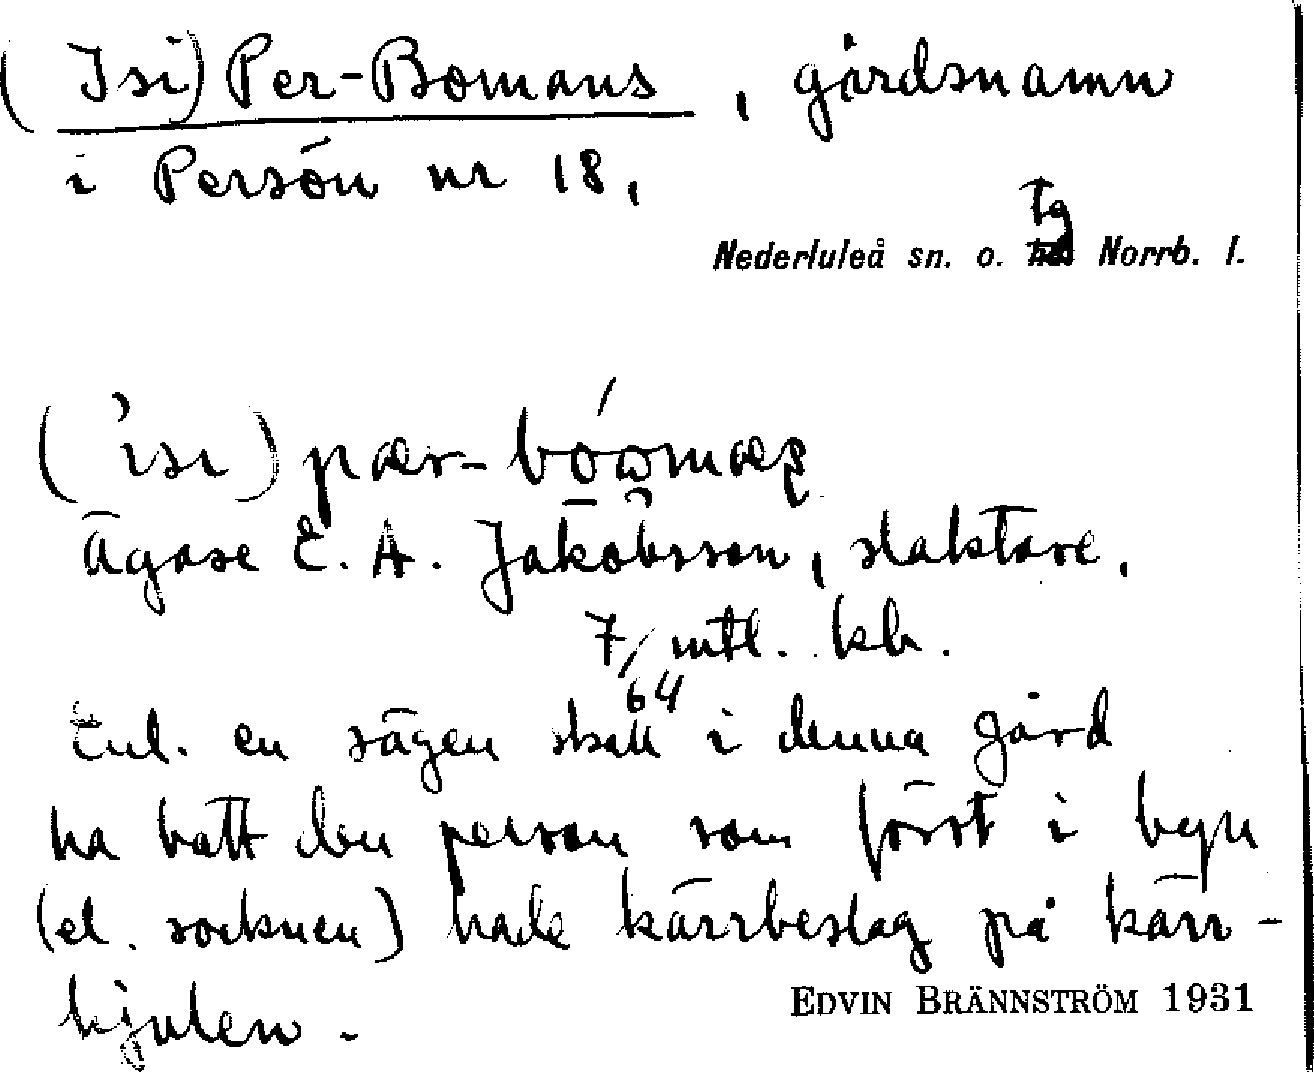 (Isi) Per-Bomans, gårdsnamn
i Persön nr 18,
Nederluleå sn. o. tg Norrb. l.
(ʼisi) pær-
Ägare E. A. Jakobsson, slaktare.
7/64 mtl. kb.
Enl. en sägen skall i denna gård
ha bott den person som först i byn
(el. socknen) hade kärrbeslag på kärr-
hjulen.
EDVIN BRÄNNSTRÖM 1931